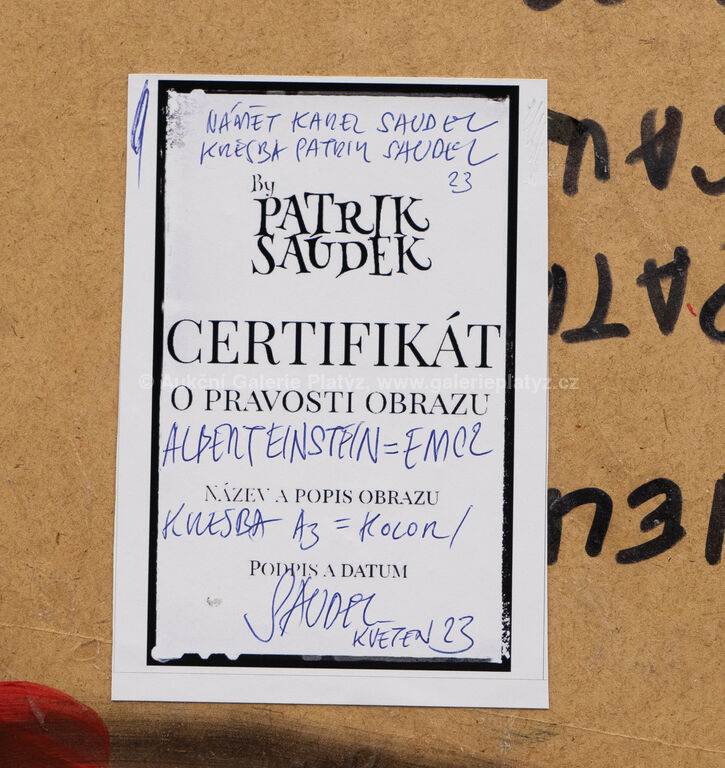 NÁMĚT KAREL SAUDEK
KRESBA PATRIK SAUDEK
23
By
PATRIK
SAUDEK
CERTIFIKÁT
© Aukční Galerie Platýz, www.galerieplatyz.cz
O PRAVOSTI OBRAZU
ALBERT EINSTEIN = EMC2
NÁZEV A POPIS OBRAZU
KRESBA A3 = KOLOR/
PODPIS A DATUM
SAUDEK
KVĚTEN 23